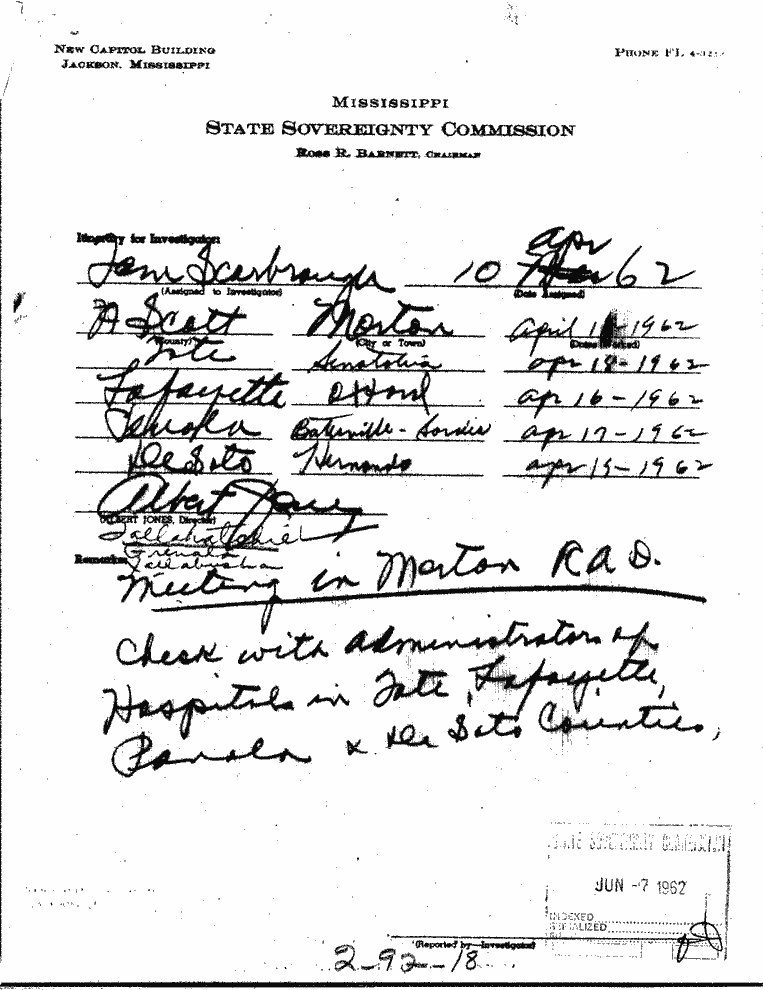 NEW CAPITOL BUILDING
JACKSON, MISSISSIPPI
PHONE FL
MISSISSIPPI
STATE SOVEREIGNTY COMMISSION
ROSS R. BARNETT, CHAIRMAN
Itinerary for Investigator:
Tom Scarbrough 10 Apr 62
(Assigned to Investigator) (Date Assigned)
Scott Morton April 1962
(County) (City or Town) (Dates Worked)
Tate Senatobia apr 18-1962
Lafayette Oxford apr 16-1962
Panola Batesville - Sardis apr 17-1962
De Soto Hernando apr 19-1962
Albert Jones
(ALBERT JONES, Director)
Tallahatchie
Grenada
Remarks: Yallabusha
Meeting in Morton R.A.D.
Check with administrators of
Hospitals in Tate, Lafayette,
Panola & De Soto Counties,
STATE SOVEREIGNTY COMMISSION
JUN -7 1962
INDEXED
SERIALIZED
(Reported by—Investigator)
2-92-18